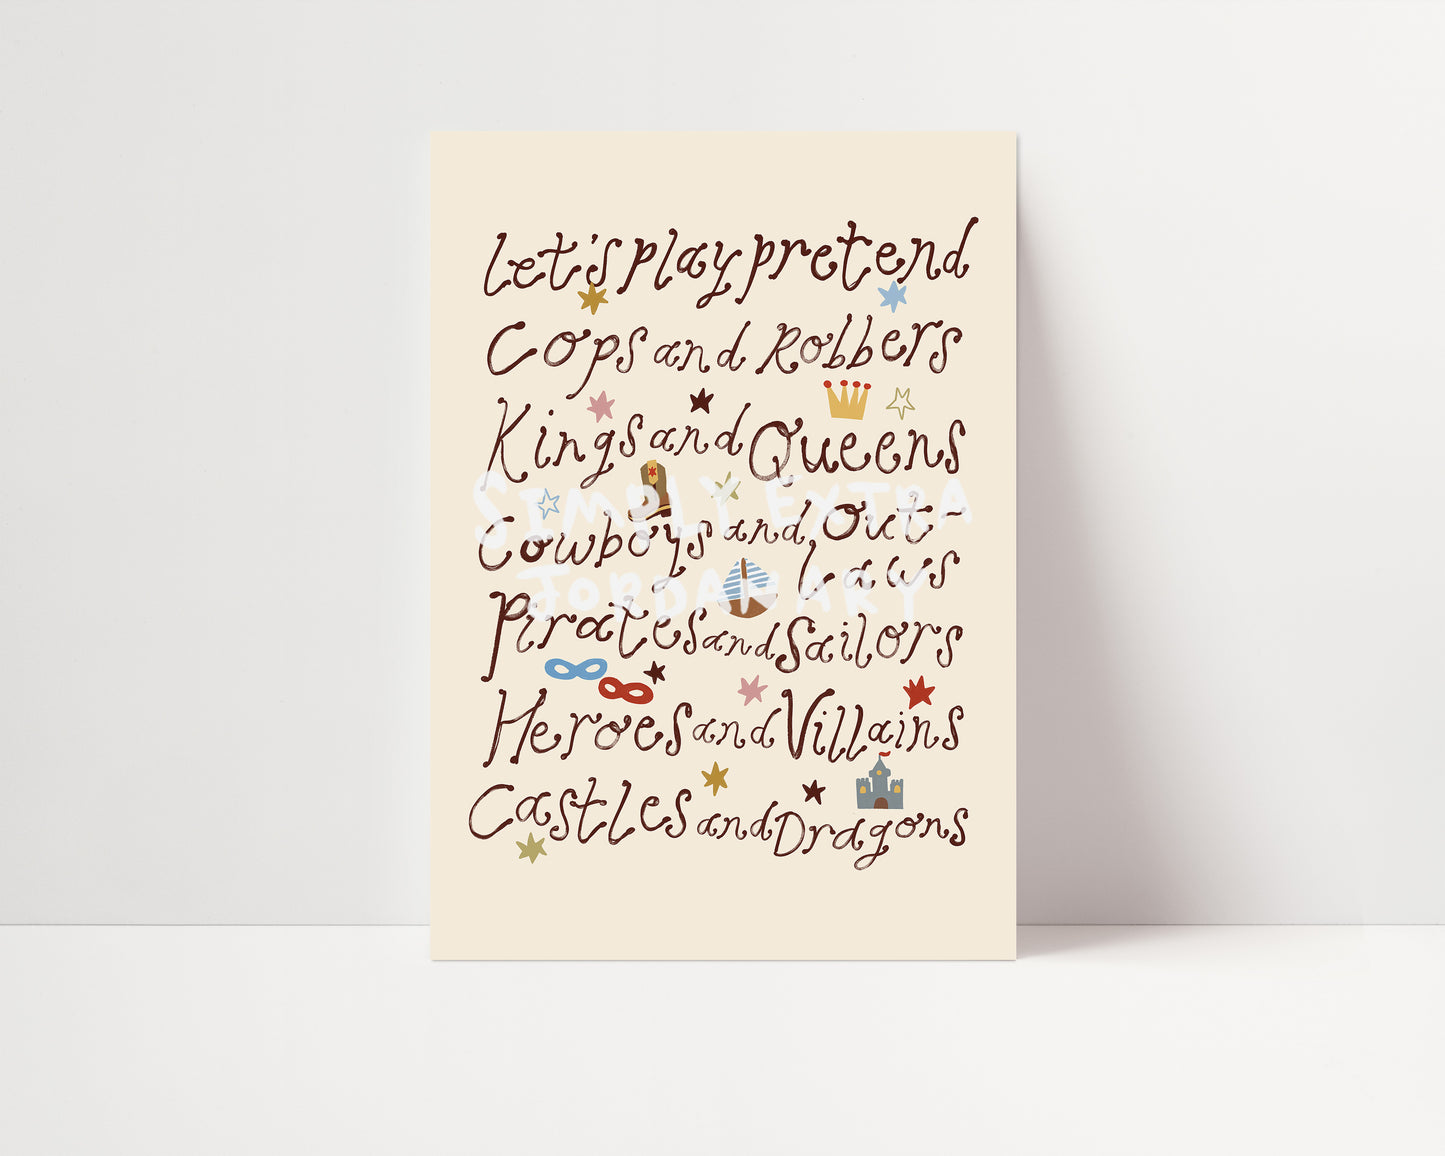 Let's play pretend
Cops and Robbers
Kings and Queens
SIMPLY EXTRA
Cowboys and Out-
Laws
JORDANARY
Pirates and Sailors
Heroes and Villains
Castles and Dragons